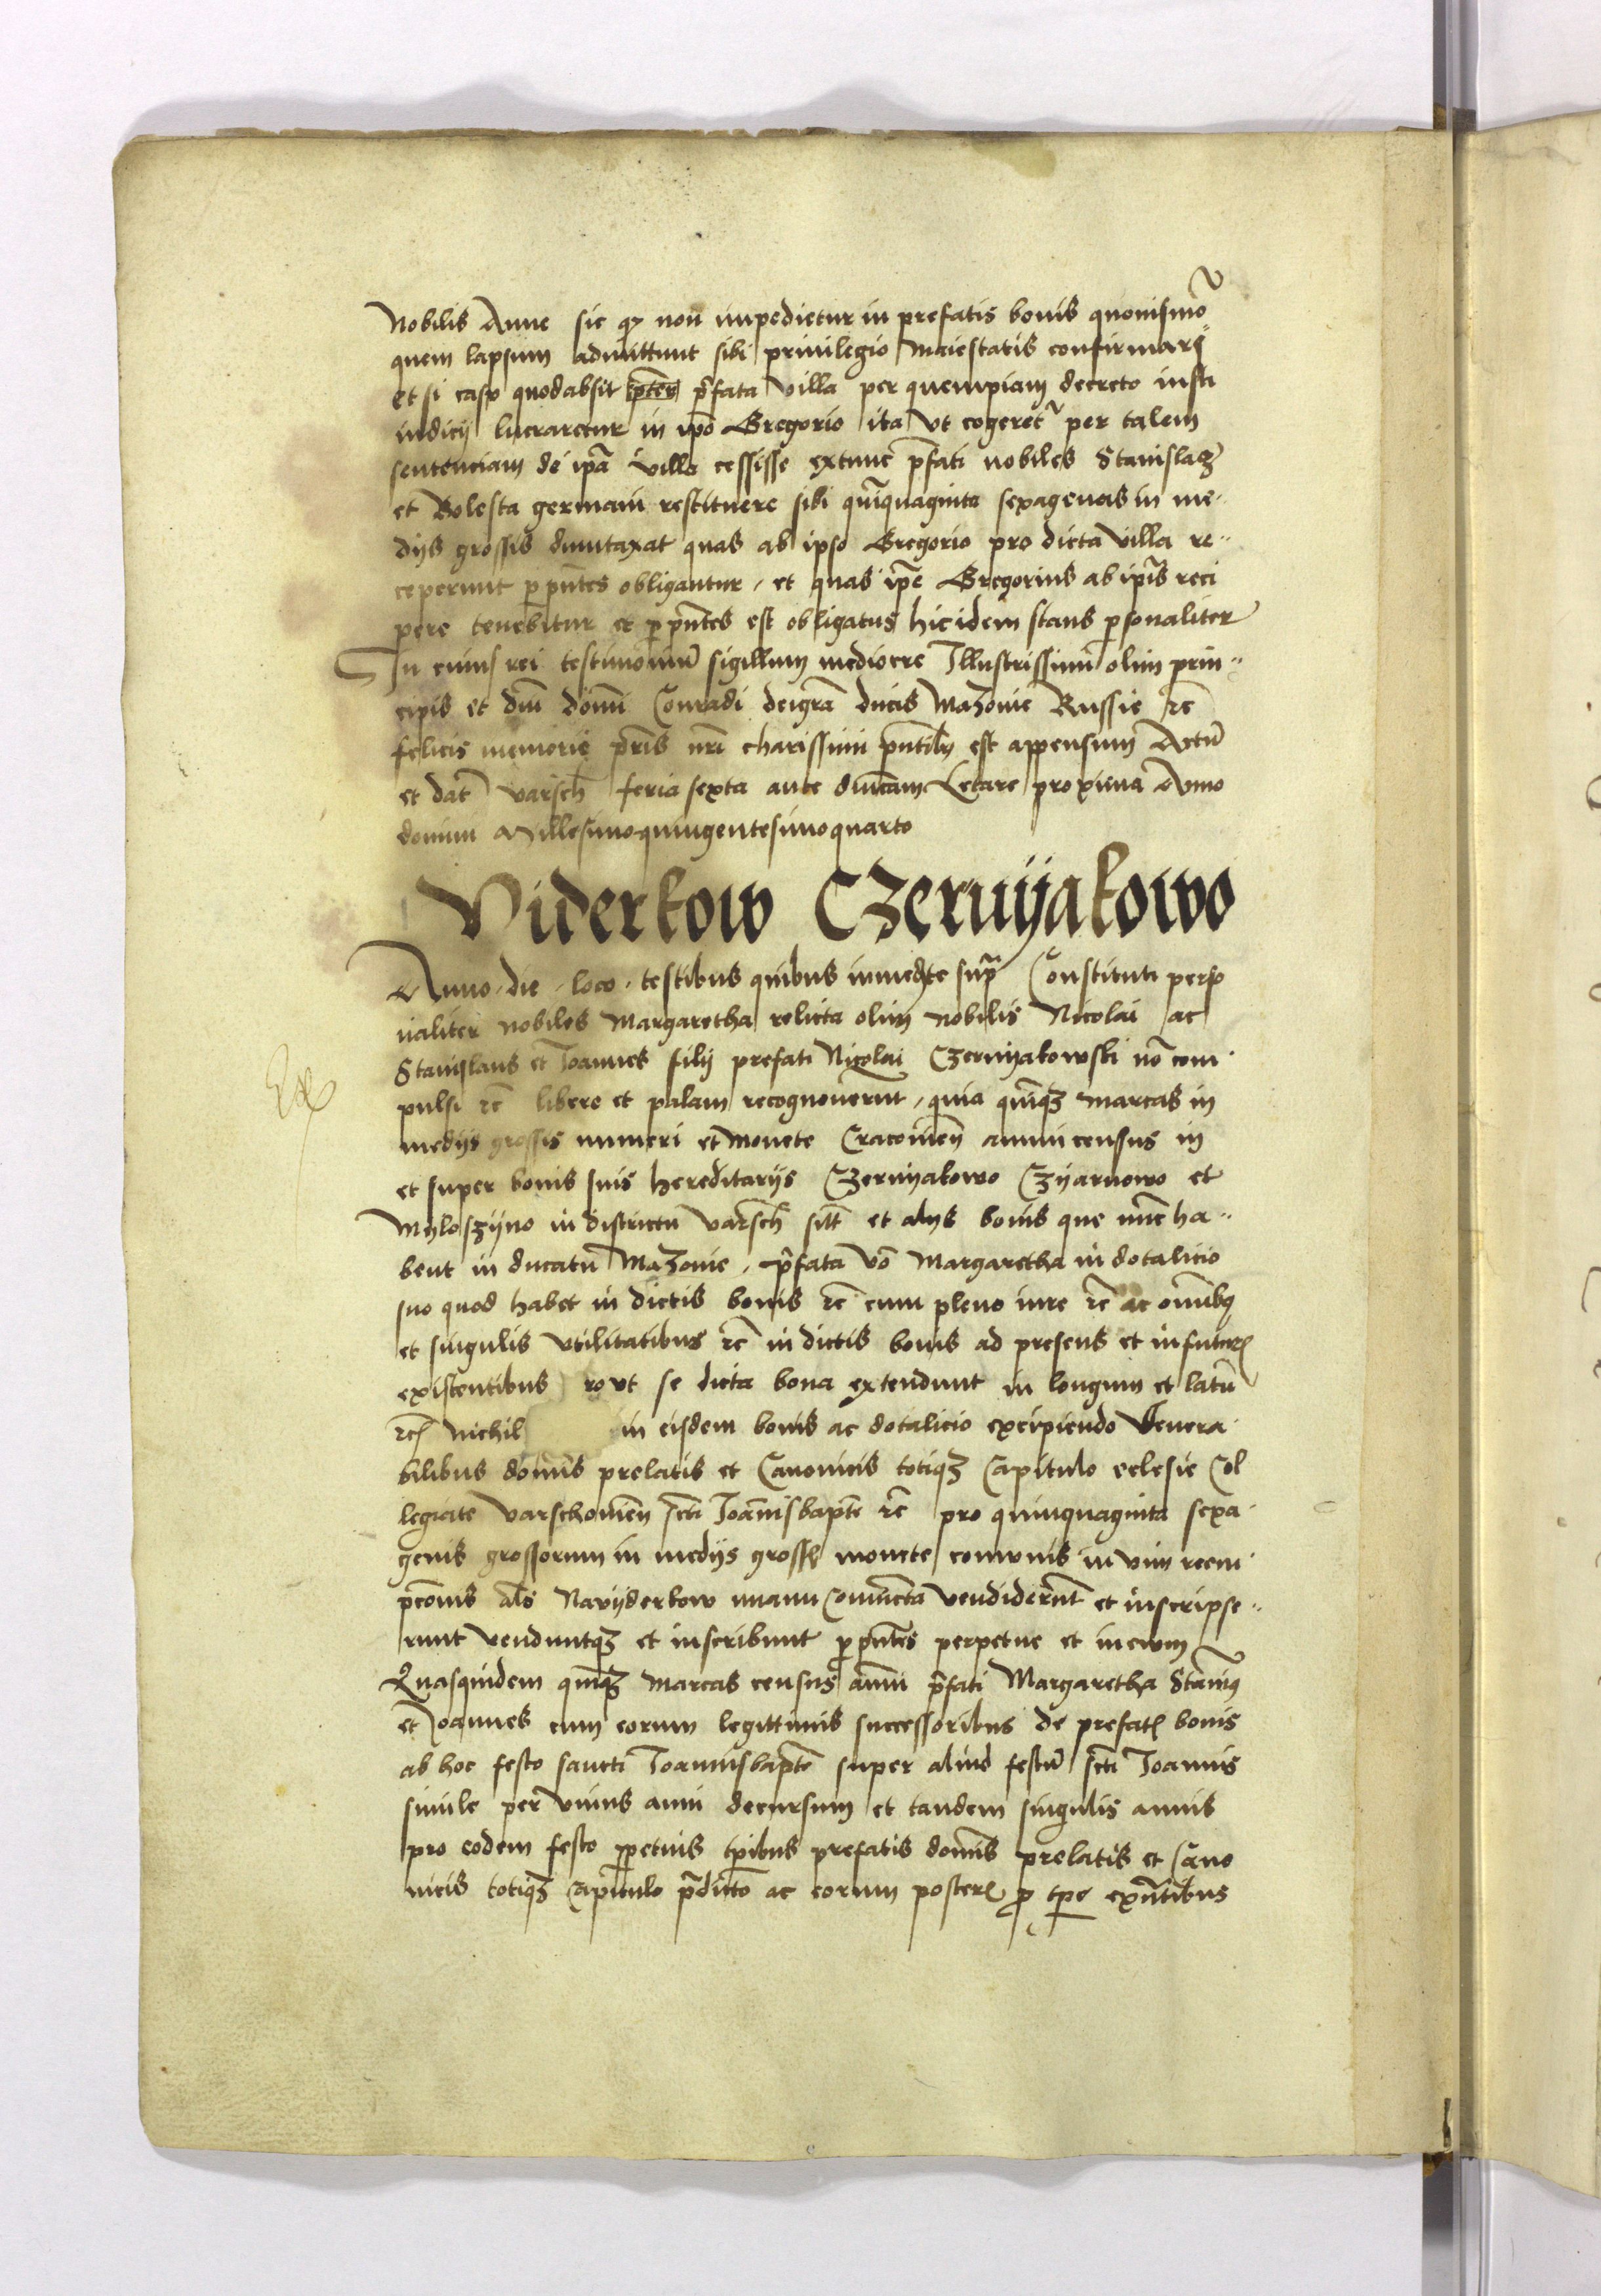 Nobilis Anne sic qz non impedietur in prefatis bonis quouismo
quem lapsum admittunt sibi priuilegio Maiestatis confirmari
et si casu quodabsit p̄fata villa per quempiam decreto iusti
iudicij lucraretur in ip̄o Gregorio ita vt cogeret᷑ per talem
sentenciam de ip̄a villa cessisse extunc p̄fati nobiles Stanislaꝰ
et Bolesta germani restituere sibi qui̅quaginta sexagenas in me-
dijs grossis dumtaxat quas ab ipso Gregorio pro dicta villa re-
ceperunt ꝑ pn̄tes obligantur, et quas ip̄e Gregorius ab ip̄is reci
pere tenebitur et ꝑ pn̄tes est obligatus hic idem stans ꝑsonaliter
In cuius rei testimoniū sigillum mediocre Illustrissimi olim prin-
cipis et dn̄i domi̅ Conradi deigr̄a ducis Mazouie Russie rc̄
felicis memorie pr̄is nr̄i charissimi pn̄tibꝰ est appensum Actū
et dat̄ varsch̄ feria sexta ante dn̄icam Letare proxima Anno
domini Millesimoquingentesimoquarto
Viderkow Czernyakowo
Anno, die, loco, testibus quibus immediate supͣ Constituti perso
naliter nobiles Margaretha relicta olim nobilis Nicolai ac
Stanislaus et Joannes filij prefati Nicolai Czernyakowski nō com-
pulsi rc̄ libere et palam recognouerūt, quia qui̅qꝫ marcas in
medijs grossis numeri et monete Cracouien̄ annui census in
et super bonis suis hereditarijs Czernyakowo Czyarnowo et
Myloszyno in districtu varsch̄ sitt̄ et alijs bonis que nu̅c ha-
bent in ducatu Mazouie, p̄fata vō Margaretha in dotalicio
suo quod habet in dictis bonis rc̄ cum pleno iure rc̄ ac om̄ibꝰ
et singulis vtilitatibus rc̄ in dictis bonis ad presens et in futuꝝ
existentibus rout se dicta bona extendunt in longum et latū
rc̄ nichil in eisdem bonis ac dotalicio excipiendo Venera-
bilibus domi̅s prelatis et Canonicis totiqꝫ Capitulo eclesie Col
legiate varschouien̄ sc̄ti Joan̄isbapte rc̄ pro quinquaginta sexa-
genis grossorum in medijs gross̄ monete com̄unis in vim reem-
pc̄onis al̄s Navyderkow manu coniuncta vendiderūt et inscripse-
runt venduntqꝫ et inscribunt ꝑ pn̄tes perpetue et ineuum
Quasquidem qui̅qꝫ marcas census an̄ui p̄fati Margaretha Stanisꝰ
et Joannes cum eorum legittimis successoribus de prefatꝭ bonis
ab hoc festo sancti Joannisbapte super aliud festū sc̄ti Joannis
simile per vnius anni decursum et tandem singulis annis
pro eodem festo ꝑpetuis tp̄ibus prefatis domi̅s prelatis et Cano
nicis totiqꝫ Capitulo p̄dicto ac eorum posterꝭ ꝓ tp̄e exn̄tibus